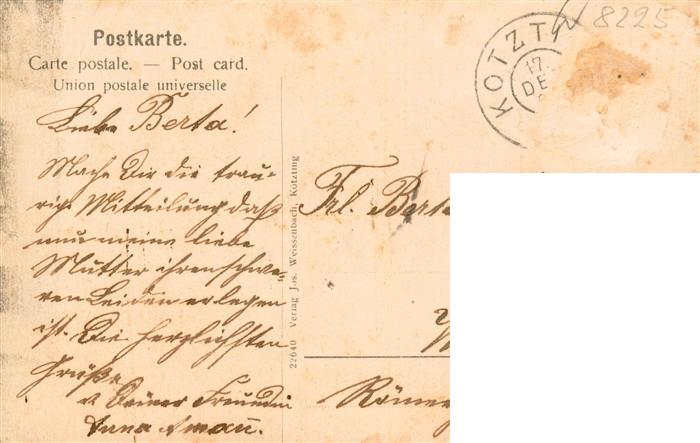 Postkarte.
Carte postale. — Post card.
Union postale universelle
Liebe Berta!
Mache Dir die trau-
rige Mitteilung daß
nun meine liebe
Mutter ihren schwe-
ren Leiden erlegen
ist. Die herzlichsten
Grüße
v. Deiner Freundin
Anna Aman̄.
22640 Verlag Jos. Weissenbach, Kötzting
KOTZT
17.
DE
8225
Frl. Berta
Römer